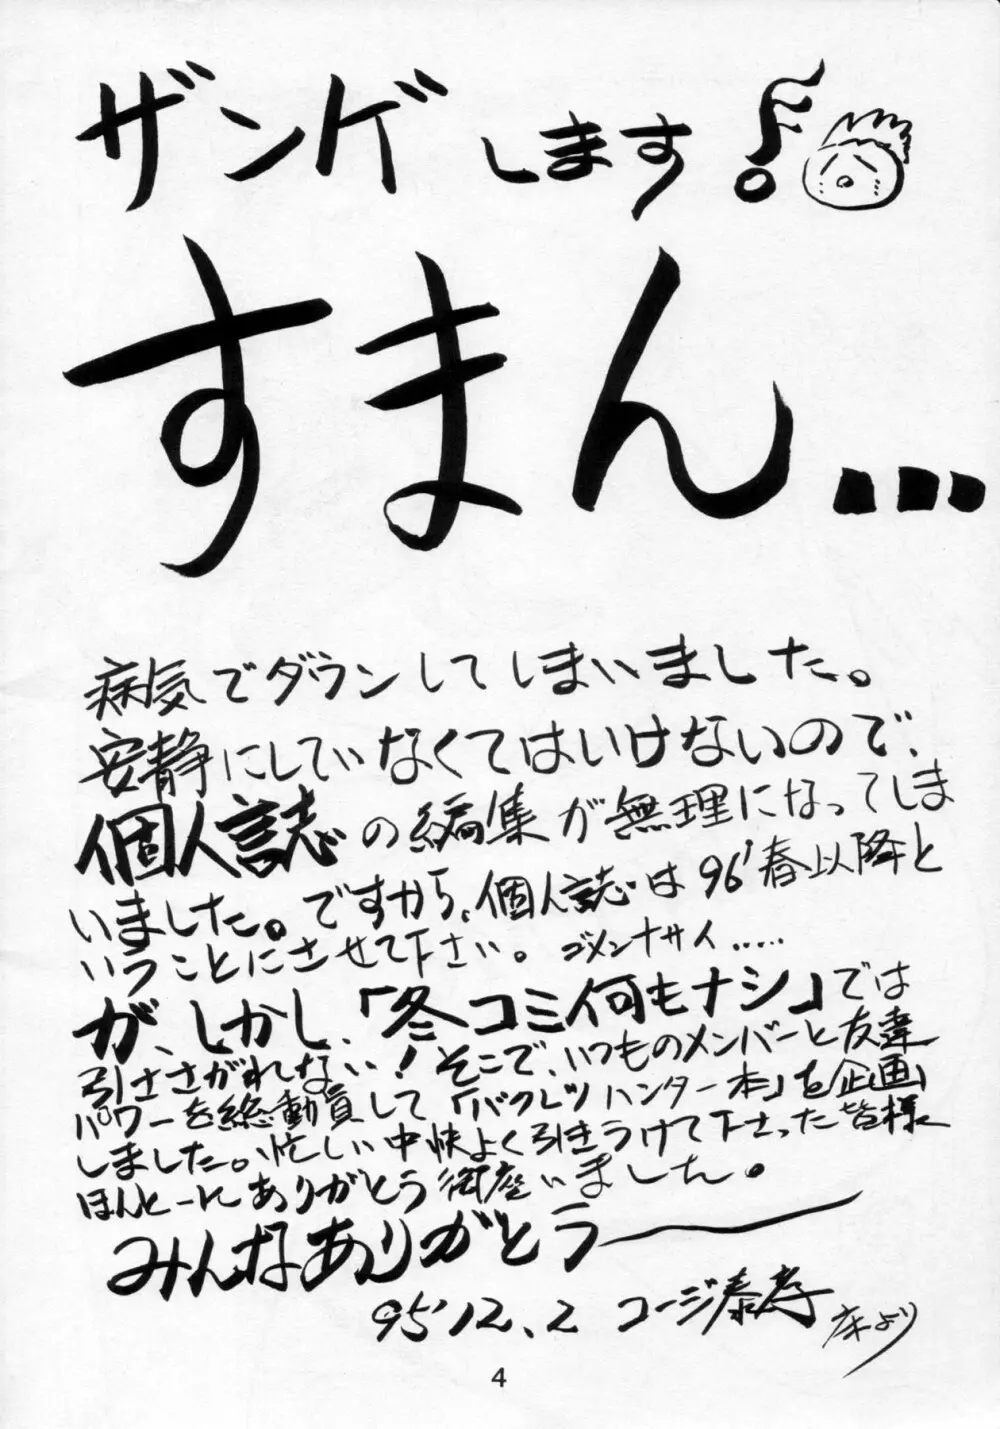 ザンゲします!
すまん…
病気でダウンしてしまいました。
安静にしていなくてはいけないので、
個人誌の編集が無理になってしま
いました。ですから、個人誌は96'春以降と
いうことにさせて下さい。ゴメンナサイ……
が、しかし、「冬コミ何もナシ」では
引きさがれない!そこで、いつものメンバーと友達
パワーを総動員して「バクレツハンター本」を企画
しました。忙しい中快よく引きうけて下さった皆様
ほんとーにありがとう御座いました。
みんなありがとうー
95'12.2 コージ泰孝
床より
4